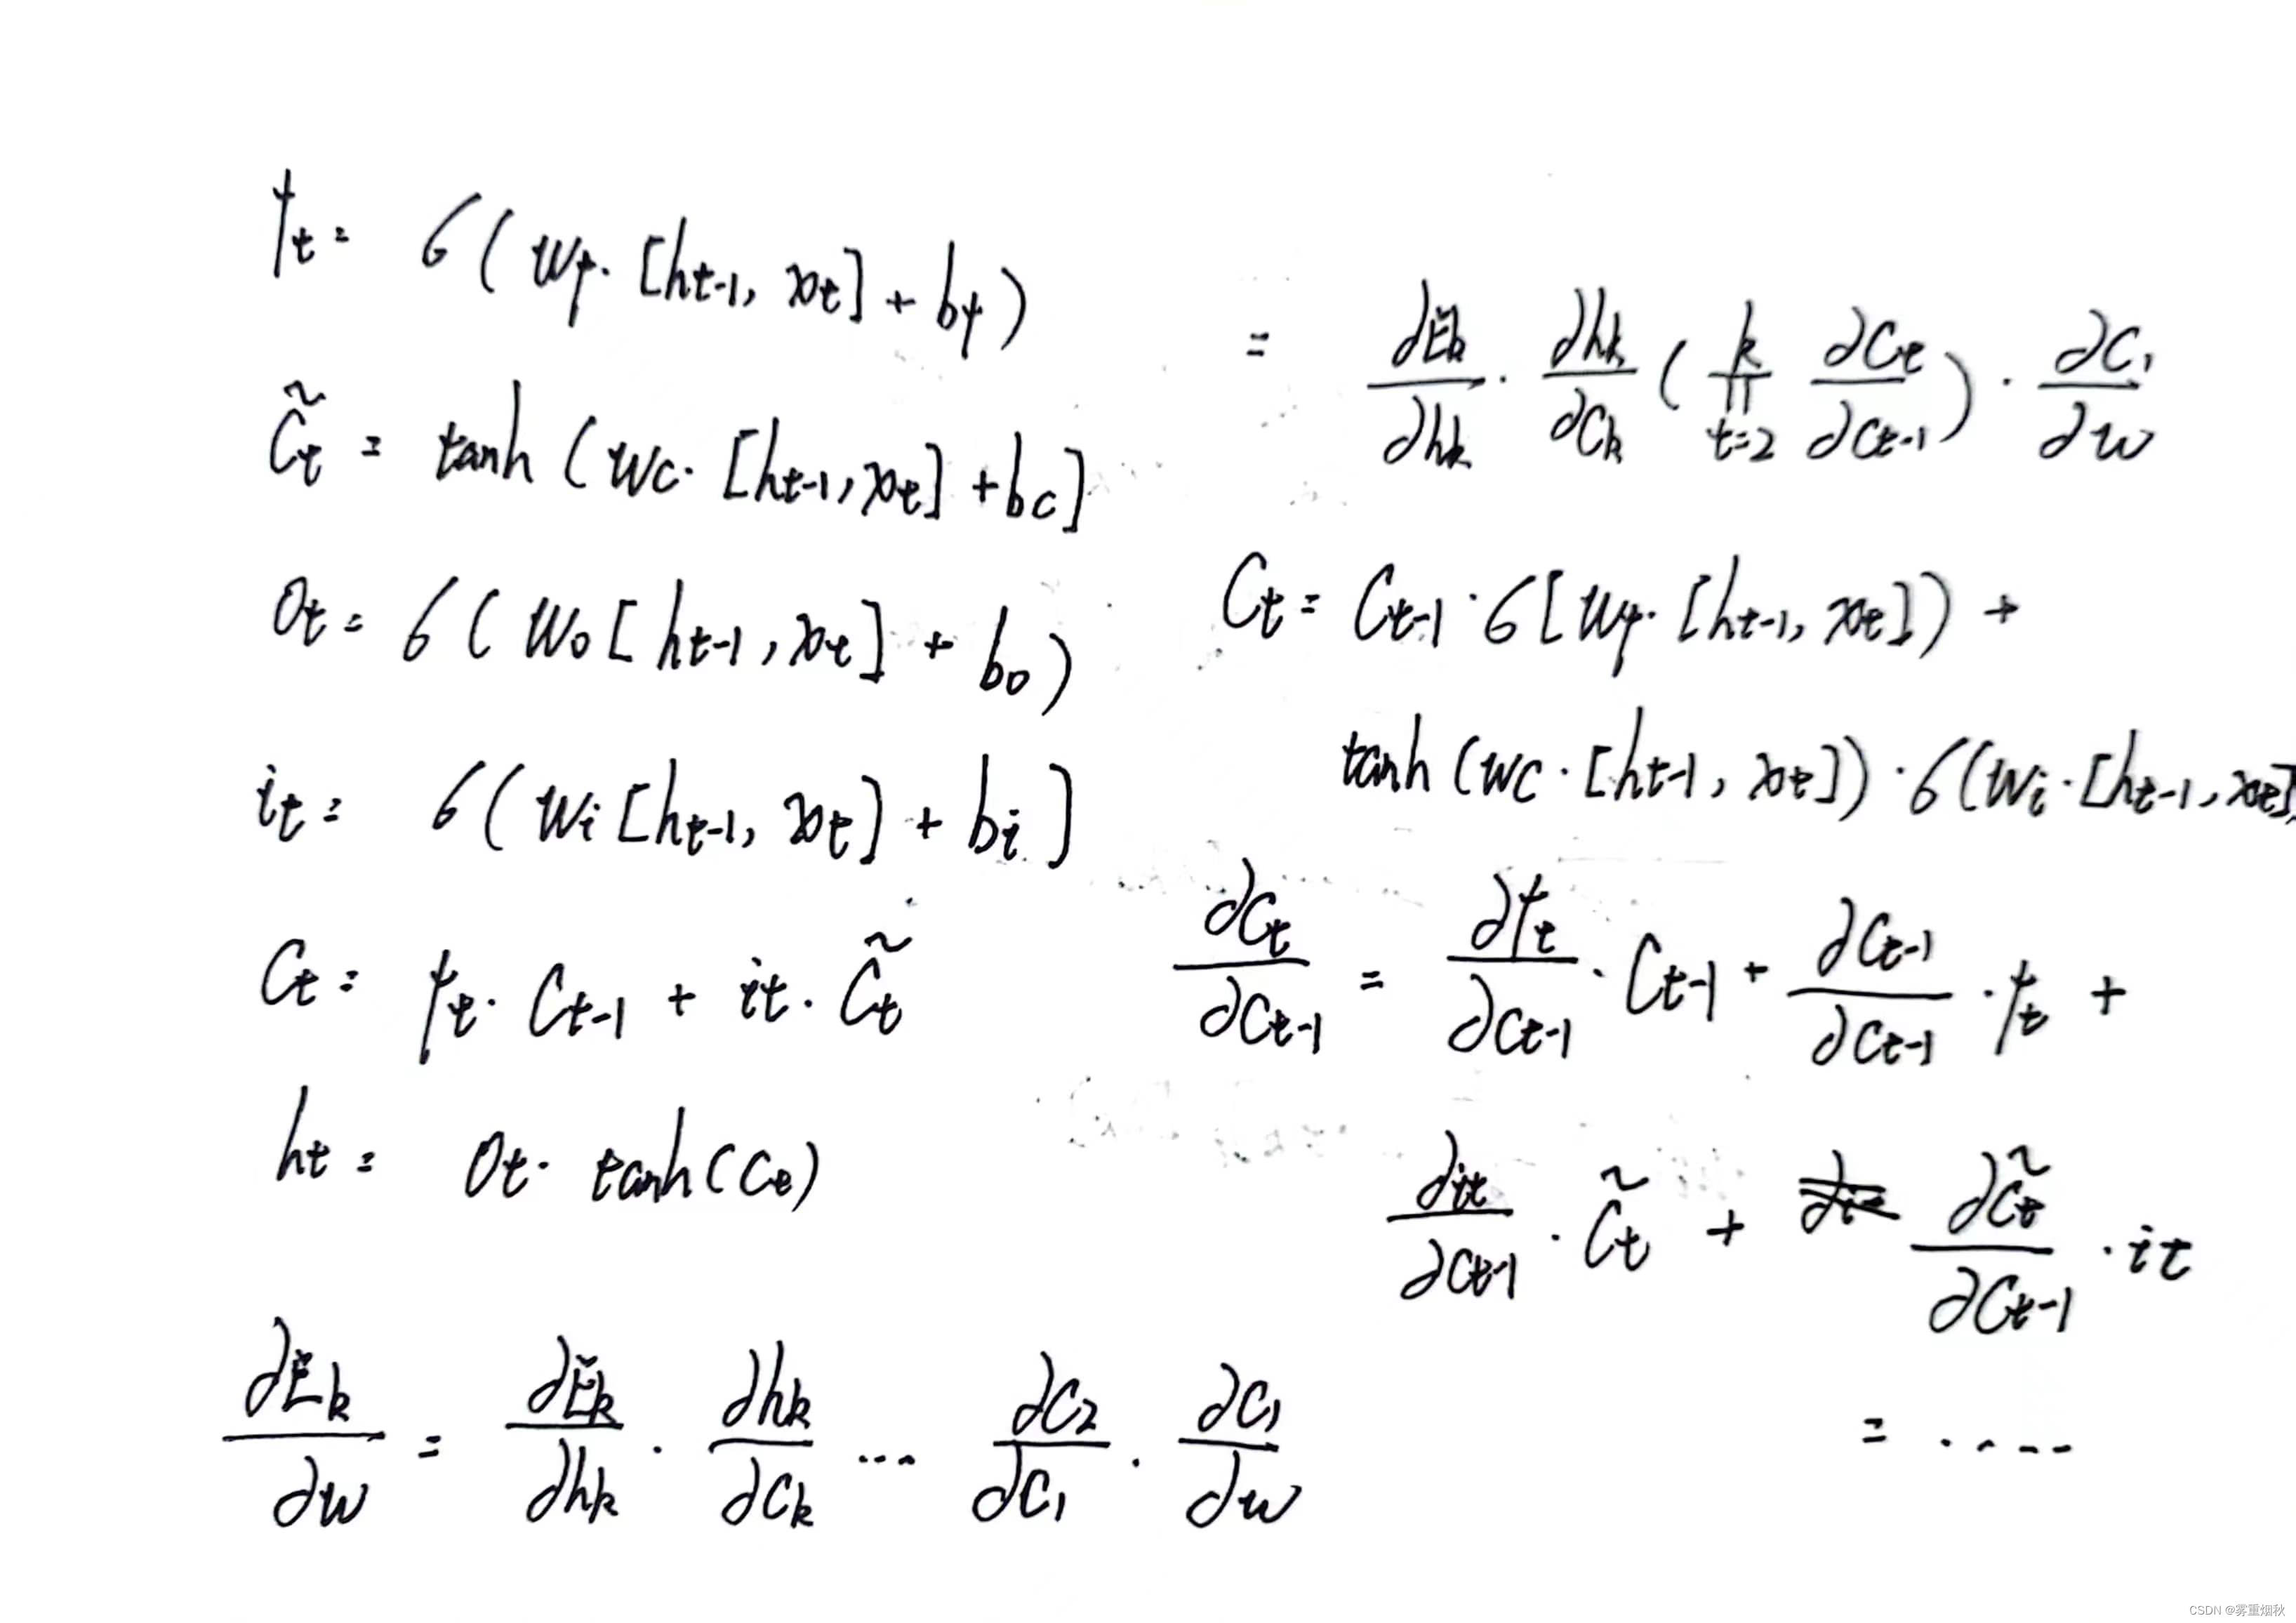 f_t = σ(W_f · [h_{t-1}, x_t] + b_f)
C̃_t = tanh(W_C · [h_{t-1}, x_t] + b_C]
O_t = σ(W_o [h_{t-1}, x_t] + b_o)
i_t = σ(W_i [h_{t-1}, x_t] + b_i]
C_t = f_t · C_{t-1} + i_t · C̃_t
h_t = O_t · tanh(C_t)
∂E_k/∂w = ∂E_k/∂h_k · ∂h_k/∂C_k ... ∂C_2/∂C_1 · ∂C_1/∂w
= ∂E_k/∂h_k · ∂h_k/∂C_k (∏_{t=2}^{k} ∂C_t/∂C_{t-1}) · ∂C_1/∂w
C_t = C_{t-1} · σ[W_f · [h_{t-1}, x_t]) +
tanh(W_C · [h_{t-1}, x_t]) · σ(W_i · [h_{t-1}, x_t]
∂C_t/∂C_{t-1} = ∂f_t/∂C_{t-1} · C_{t-1} + ∂C_{t-1}/∂C_{t-1} · f_t +
∂i_t/∂C_{t-1} · C̃_t + ∂C̃_t/∂C_{t-1} · i_t
= ·····
CSDN @雾重烟秋